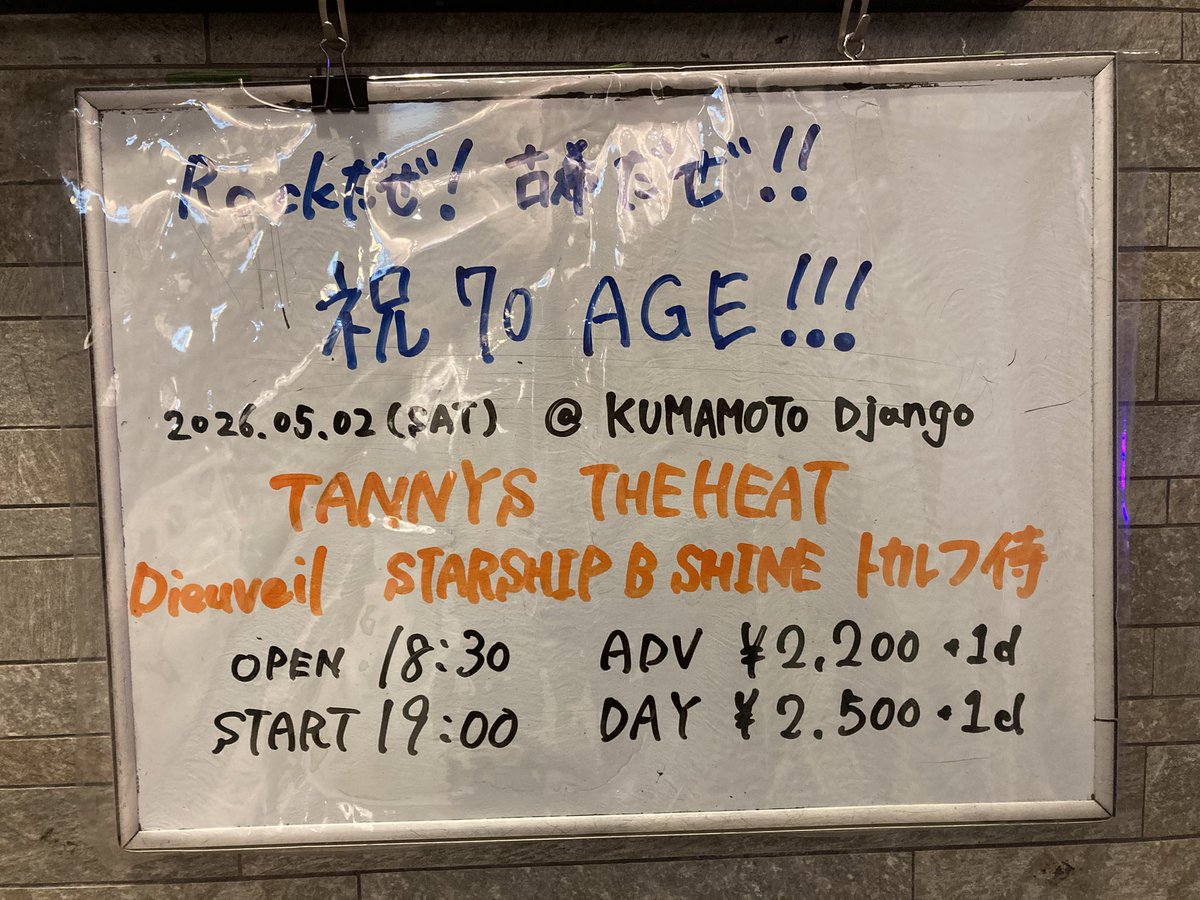 Rockだぜ! 古希だぜ!!
祝 70 AGE!!!
2026.05.02(SAT) @ KUMAMOTO Django
TANNYS THEHEAT
Dieuveil STARSHIP B SHINE トカレフ侍
OPEN 18:30 ADV ¥2.200+1d
START 19:00 DAY ¥2.500+1d